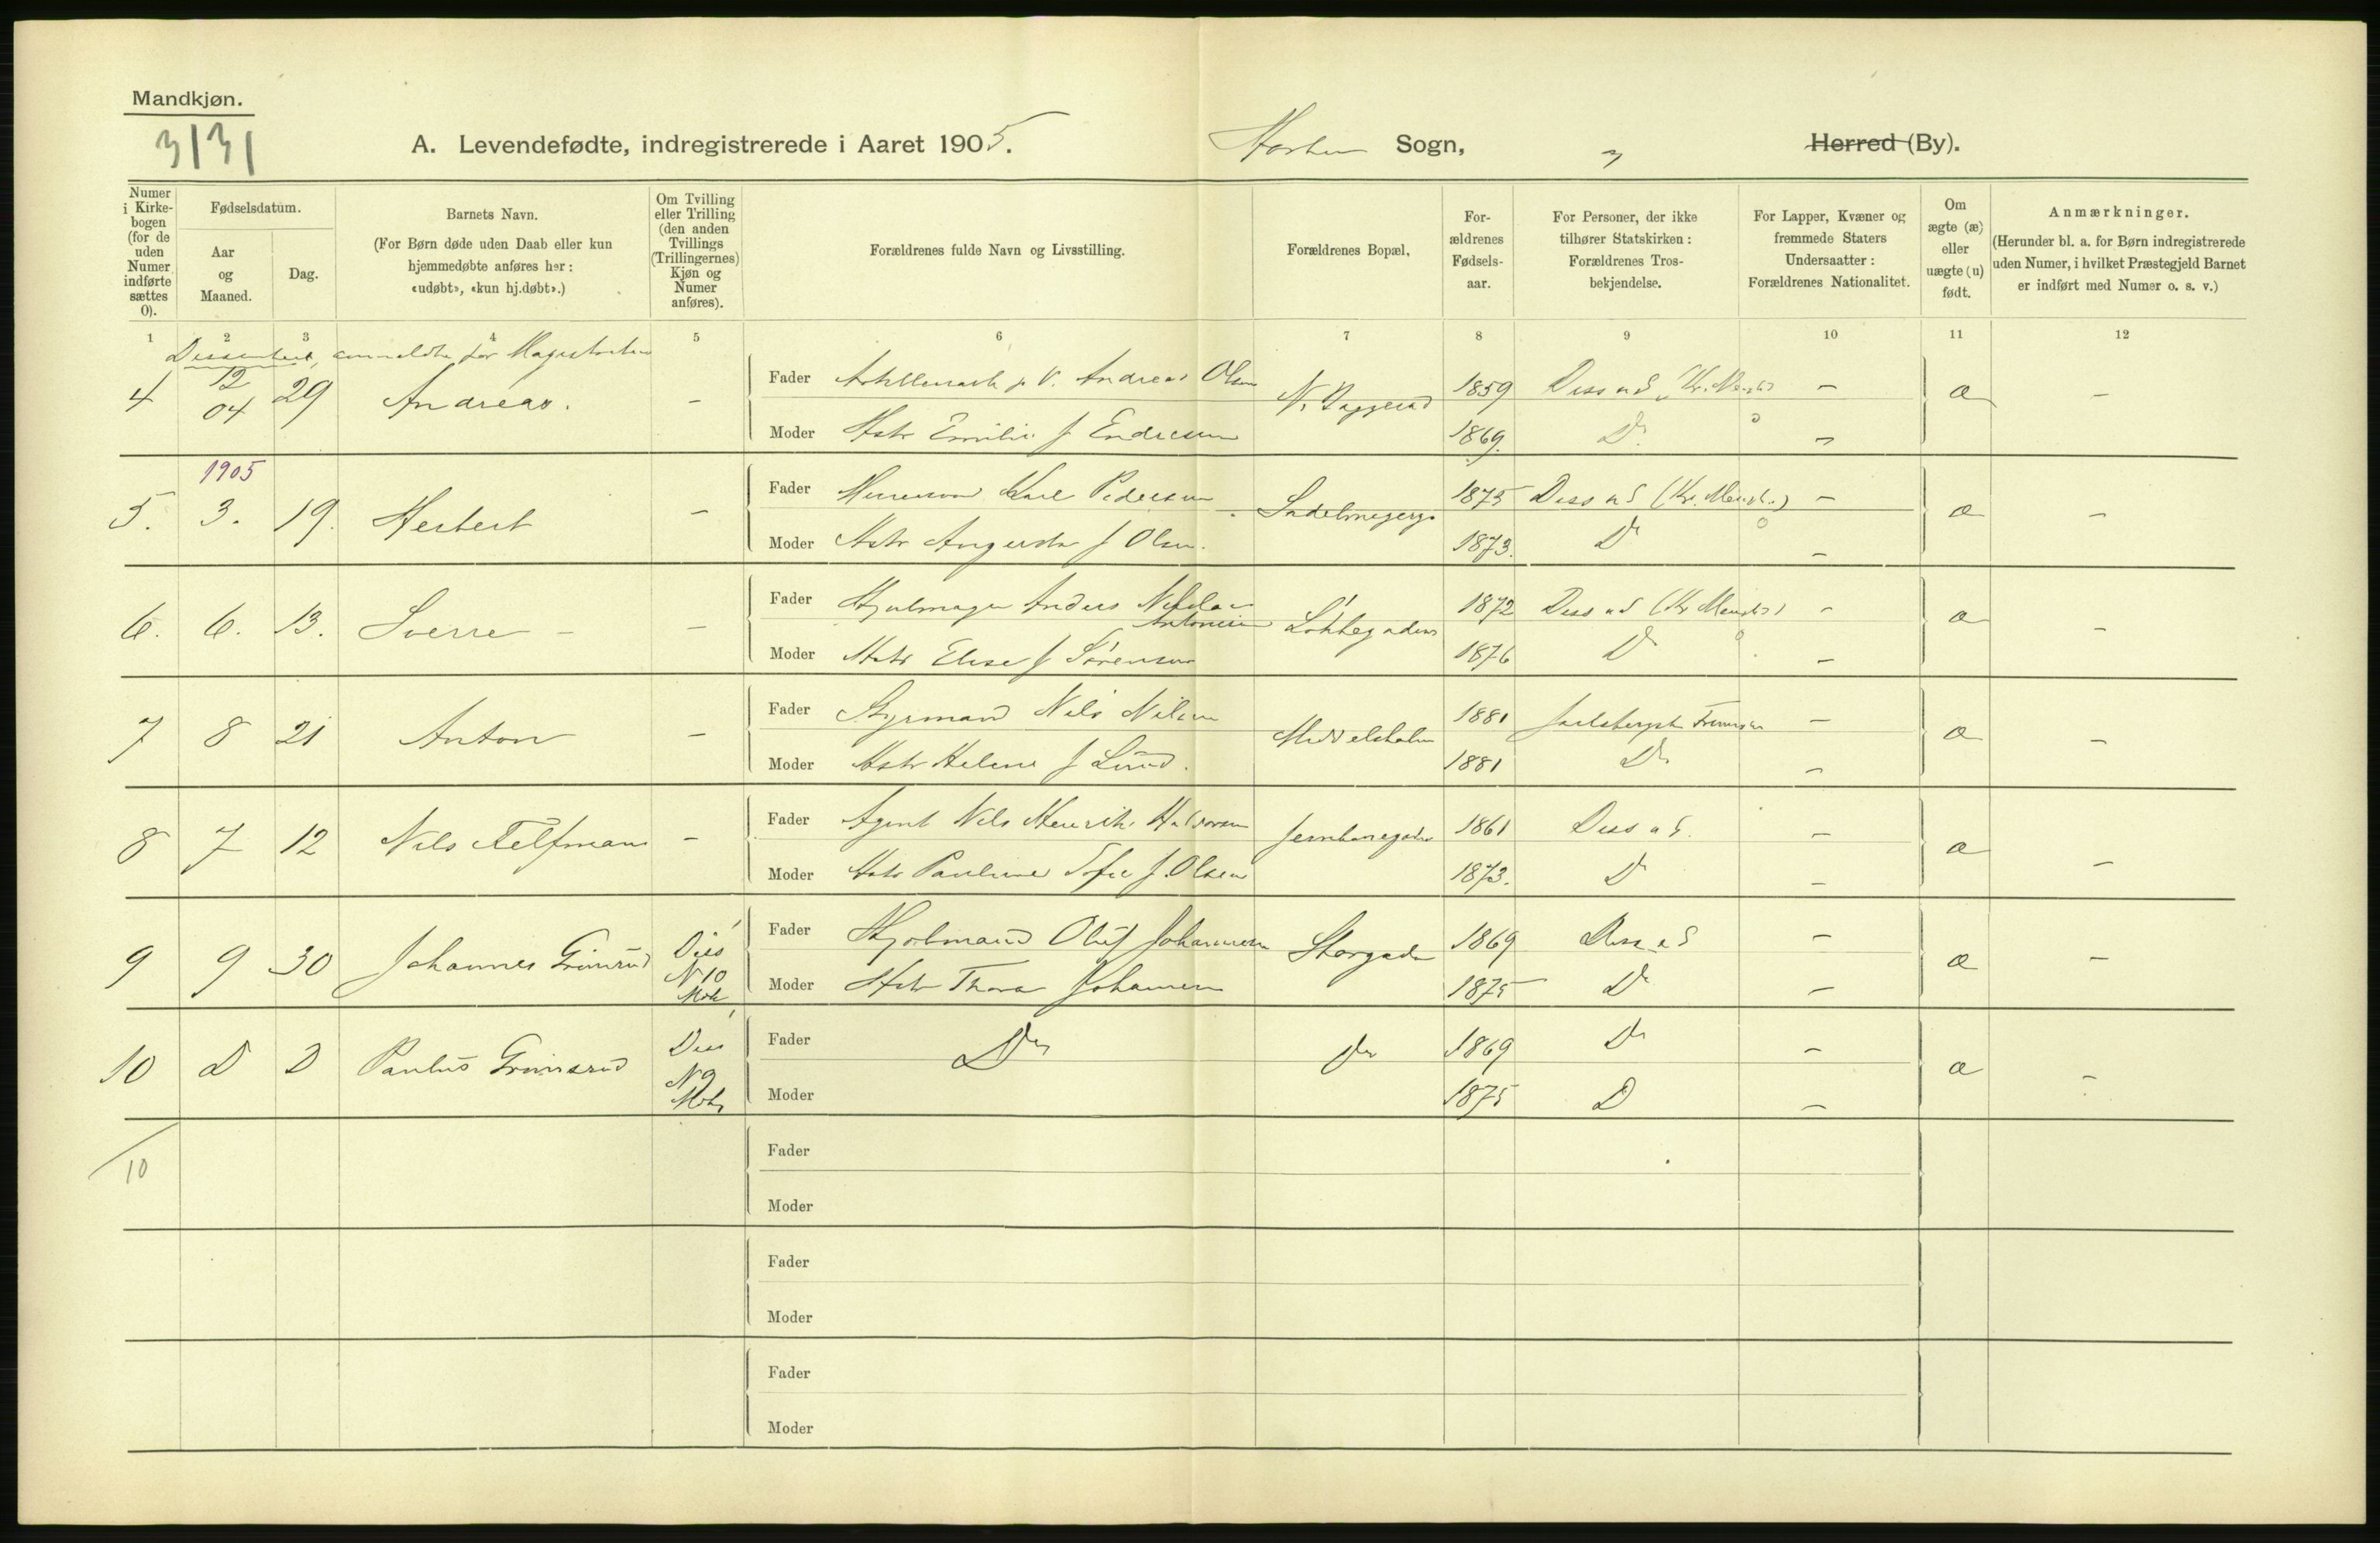 Mandkjøn.
3131
A. Levendefødte, indregistrerede i Aaret 1905. Horten Sogn, Herred (By).
Numer i Kirkebogen (for de uden Numer indførte sættes 0).
Fødselsdatum.
Aar og Maaned.
Dag.
Barnets Navn.
(For Børn døde uden Daab eller kun hjemmedøbte anføres her: «udøbt», «kun hj.døbt».)
Om Tvilling eller Trilling (den anden Tvillings (Trillingernes) Kjøn og Numer anføres).
Forældrenes fulde Navn og Livsstilling.
Forældrenes Bopæl,
Forældrenes Fødselsaar.
For Personer, der ikke tilhører Statskirken: Forældrenes Trosbekjendelse.
For Lapper, Kvæner og fremmede Staters Undersaatter: Forældrenes Nationalitet.
Om ægte (æ) eller uægte (u) født.
Anmærkninger.
(Herunder bl. a. for Børn indregistrerede uden Numer, i hvilket Præstegjeld Barnet er indført med Numer o. s. v.)
1 2 3 4 5 6 7 8 9 10 11 12
anmeldte for Magistraten
4 12 04 29 Andreas. - Fader Andreas Olsen 1859 Diss - æ -
Moder Emilie f Endresen 1869. Do -
1905
5. 3. 19. Herbert - Fader Karl Pedersen 1875 Diss - æ -
Moder Augusta f Olsen. 1873. Do -
6. 6. 13. Sverre - - Fader Hjulmager Anders Nikolai Antonisen Løkkegaden 1872 Diss - æ -
Moder Elise f Sørensen 1876 Do -
7 8 21 Anton - Fader Styrmand Nils Nilsen 1881 - æ -
Moder Helene f Lund. 1881 Do -
8 7 12 Nils - Fader Agent Nils Henrik Halvorsen Jernbanegaden 1861 Diss - æ -
Moder Pauline Sofie f. Olsen 1873. Do -
9 9 30 Johannes Grimsrud No 10 Fader Olaf Johannesen Storgaden 1869 Diss - æ -
Moder Thora Johannesen 1875 Do -
10 D D Paulus Grimsrud No 9 Fader Do Do 1869 Do - æ -
Moder 1875 D -
10 Fader
Moder
Fader
Moder
Fader
Moder